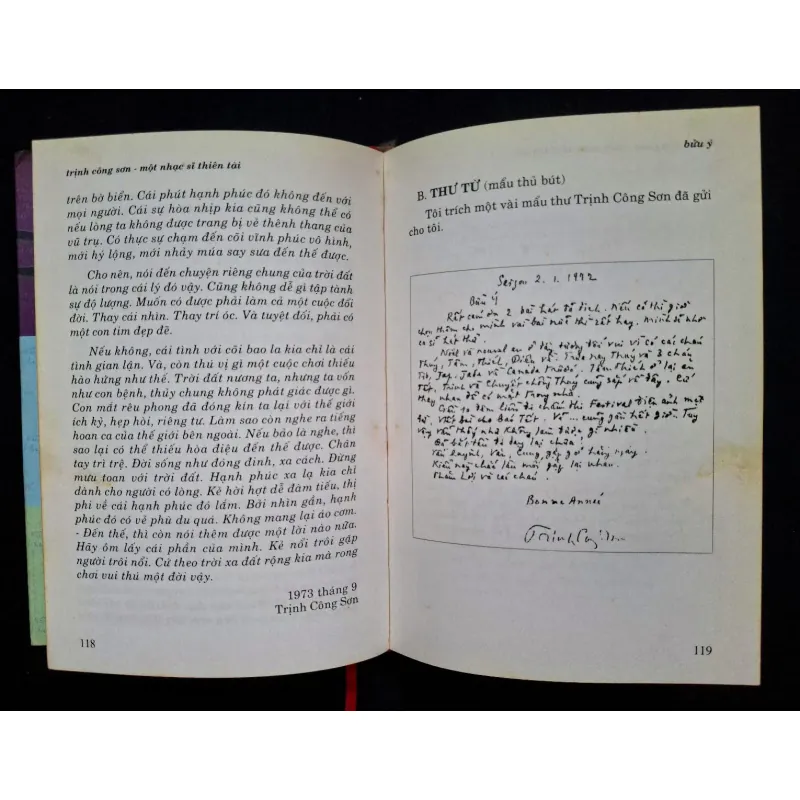 trịnh công sơn - một nhạc sĩ thiên tài
trên bờ biển. Cái phút hạnh phúc đó không đến với
mọi người. Cái sự hòa nhịp kia cũng không thể có
nếu lòng ta không được trang bị vẻ thênh thang của
vũ trụ. Có thực sự chạm đến cõi vĩnh phúc vô hình,
mới hý lộng, mới nhảy múa say sưa đến thế được.
Cho nên, nói đến chuyện riêng chung của trời đất
là nói trong cái lý đó vậy. Cũng không dễ gì tập tành
sự độ lượng. Muốn có được phải làm cả một cuộc đổi
đời. Thay cái nhìn. Thay trí óc. Và tuyệt đối, phải có
một con tim đẹp đẽ.
Nếu không, cái tình với cõi bao la kia chỉ là cái
tình gian lận. Và, còn thú vị gì một cuộc chơi thiếu
hào hứng như thế. Trời đất nương ta, nhưng ta vốn
như con bệnh, thủy chung không phát giác được gì.
Con mắt rêu phong đã đóng kín ta lại với thế giới
ích kỷ, hẹp hòi, riêng tư. Làm sao còn nghe ra tiếng
hoan ca của thế giới bên ngoài. Nếu bảo là nghe, thì
sao lại có thể thiếu hòa điệu đến thế được. Chân
tay trì trệ. Đời sống như đóng đinh, xa cách. Đừng
mưu toan với trời đất. Hạnh phúc xa lạ kia chỉ
dành cho người có lòng. Kẻ hời hợt dễ đâm tiếu, thị
phi về cái hạnh phúc đó lắm. Bởi nhìn gần, hạnh
phúc đó có vẻ phù du quá. Không mang lại áo cơm.
- Đến thế, thì còn nói thêm được một lời nào nữa.
Hãy ôm lấy cái phần của mình. Kẻ nổi trôi gặp
người trôi nổi. Cứ theo trời xa đất rộng kia mà rong
chơi vui thú một đời vậy.
1973 tháng 9
Trịnh Công Sơn
118
bửu ý
B. THƯ TỪ (mẫu thủ bút)
Tôi trích một vài mẩu thư Trịnh Công Sơn đã gửi
cho tôi.
Saigon 2.1.1992
Bửu Ý
Rất cám ơn 2 bài hát đã dịch. Nếu có thì giờ
chọn thêm cho mình vài bài nữa thì rất hay. Mình sẽ nhờ
ca sĩ hát thử.
Noël và nouvel an ở đây tương đối vui vì có các cháu
Thúy, Tâm, Thích, Diệu về. Trưa nay Thúy và 3 cháu
về Canada trước. Tâm Thích ở lại ăn
Tết. Trinh và chồng Thúy cũng sắp về đây. Cứ
thay nhau để có mặt trong nhà.
chấm thi Festival điện ảnh
viết bài cho báo Tết.
gặp gỡ hàng ngày.
Kiểu này chắc lâu mới gặp lại nhau.
Thăm Lợi và các cháu.
Bonne Année
Trịnh Công Sơn
119